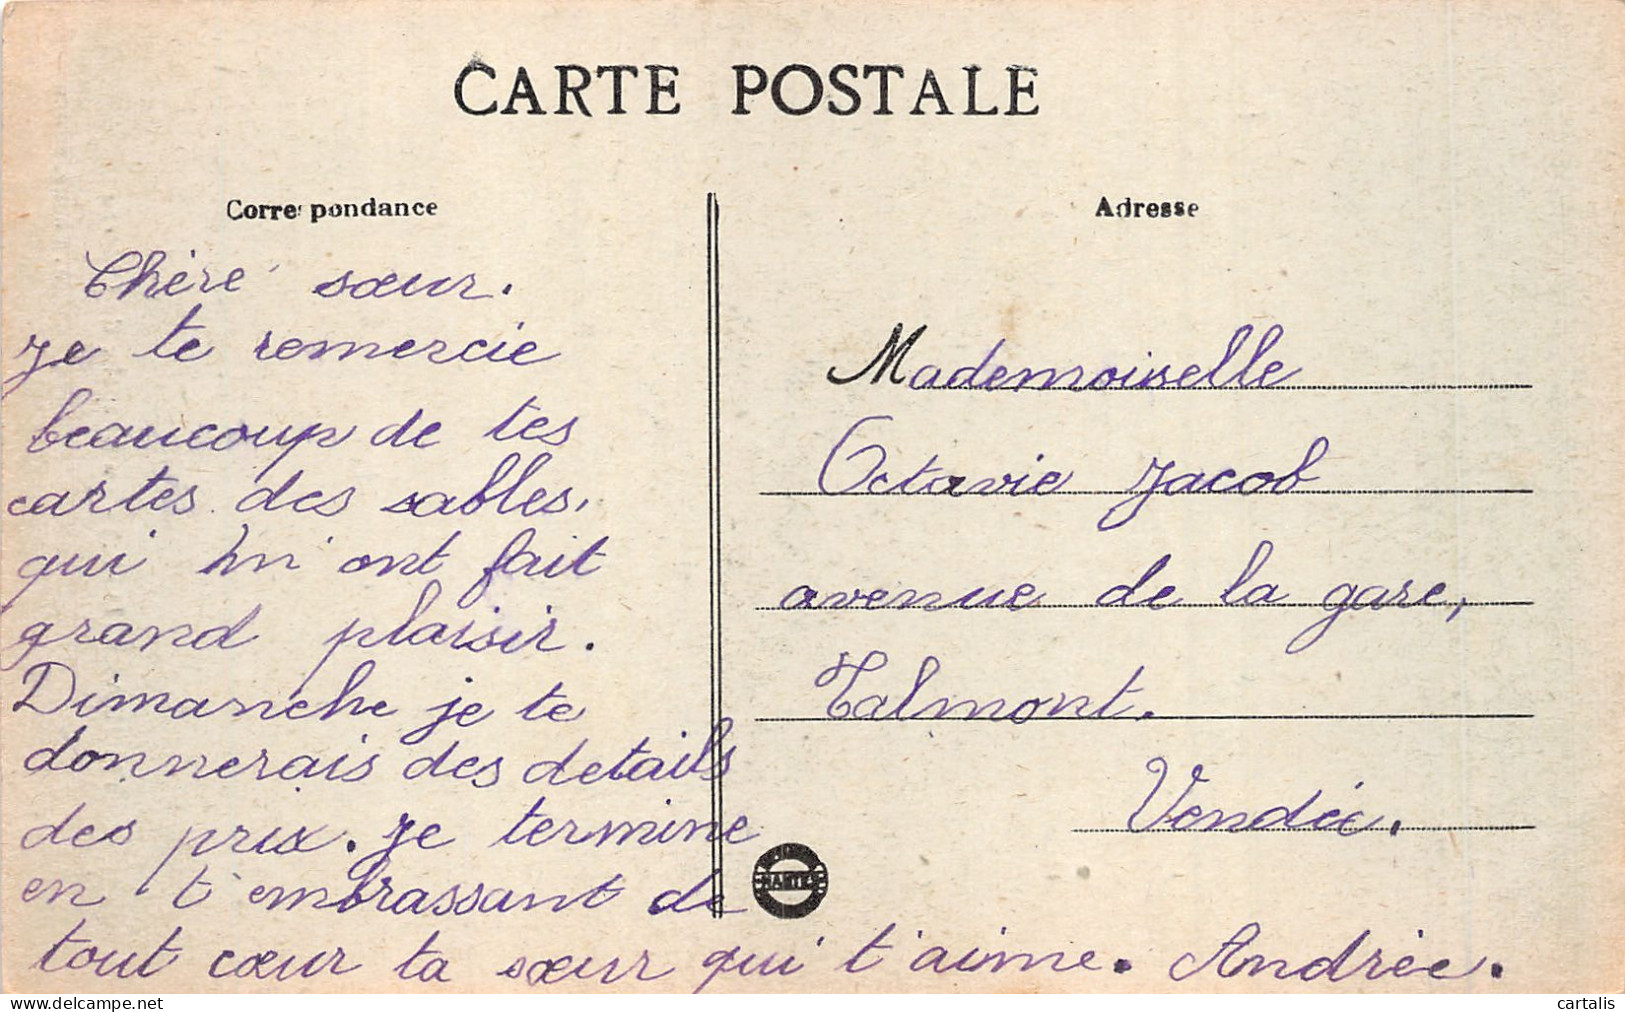 CARTE POSTALE
Correspondance
Chère sœur.
Je te remercie
beaucoup de tes
cartes des sables,
qui m'ont fait
grand plaisir.
Dimanche je te
donnerais des details
des prix. Je termine
en t'embrassant de
tout cœur ta sœur qui t'aime. Andrée.
Adresse
Mademoiselle
Octavie Jacob
avenue de la gare,
Talmont.
Vendée.
NANTES
www.delcampe.net
cartalis